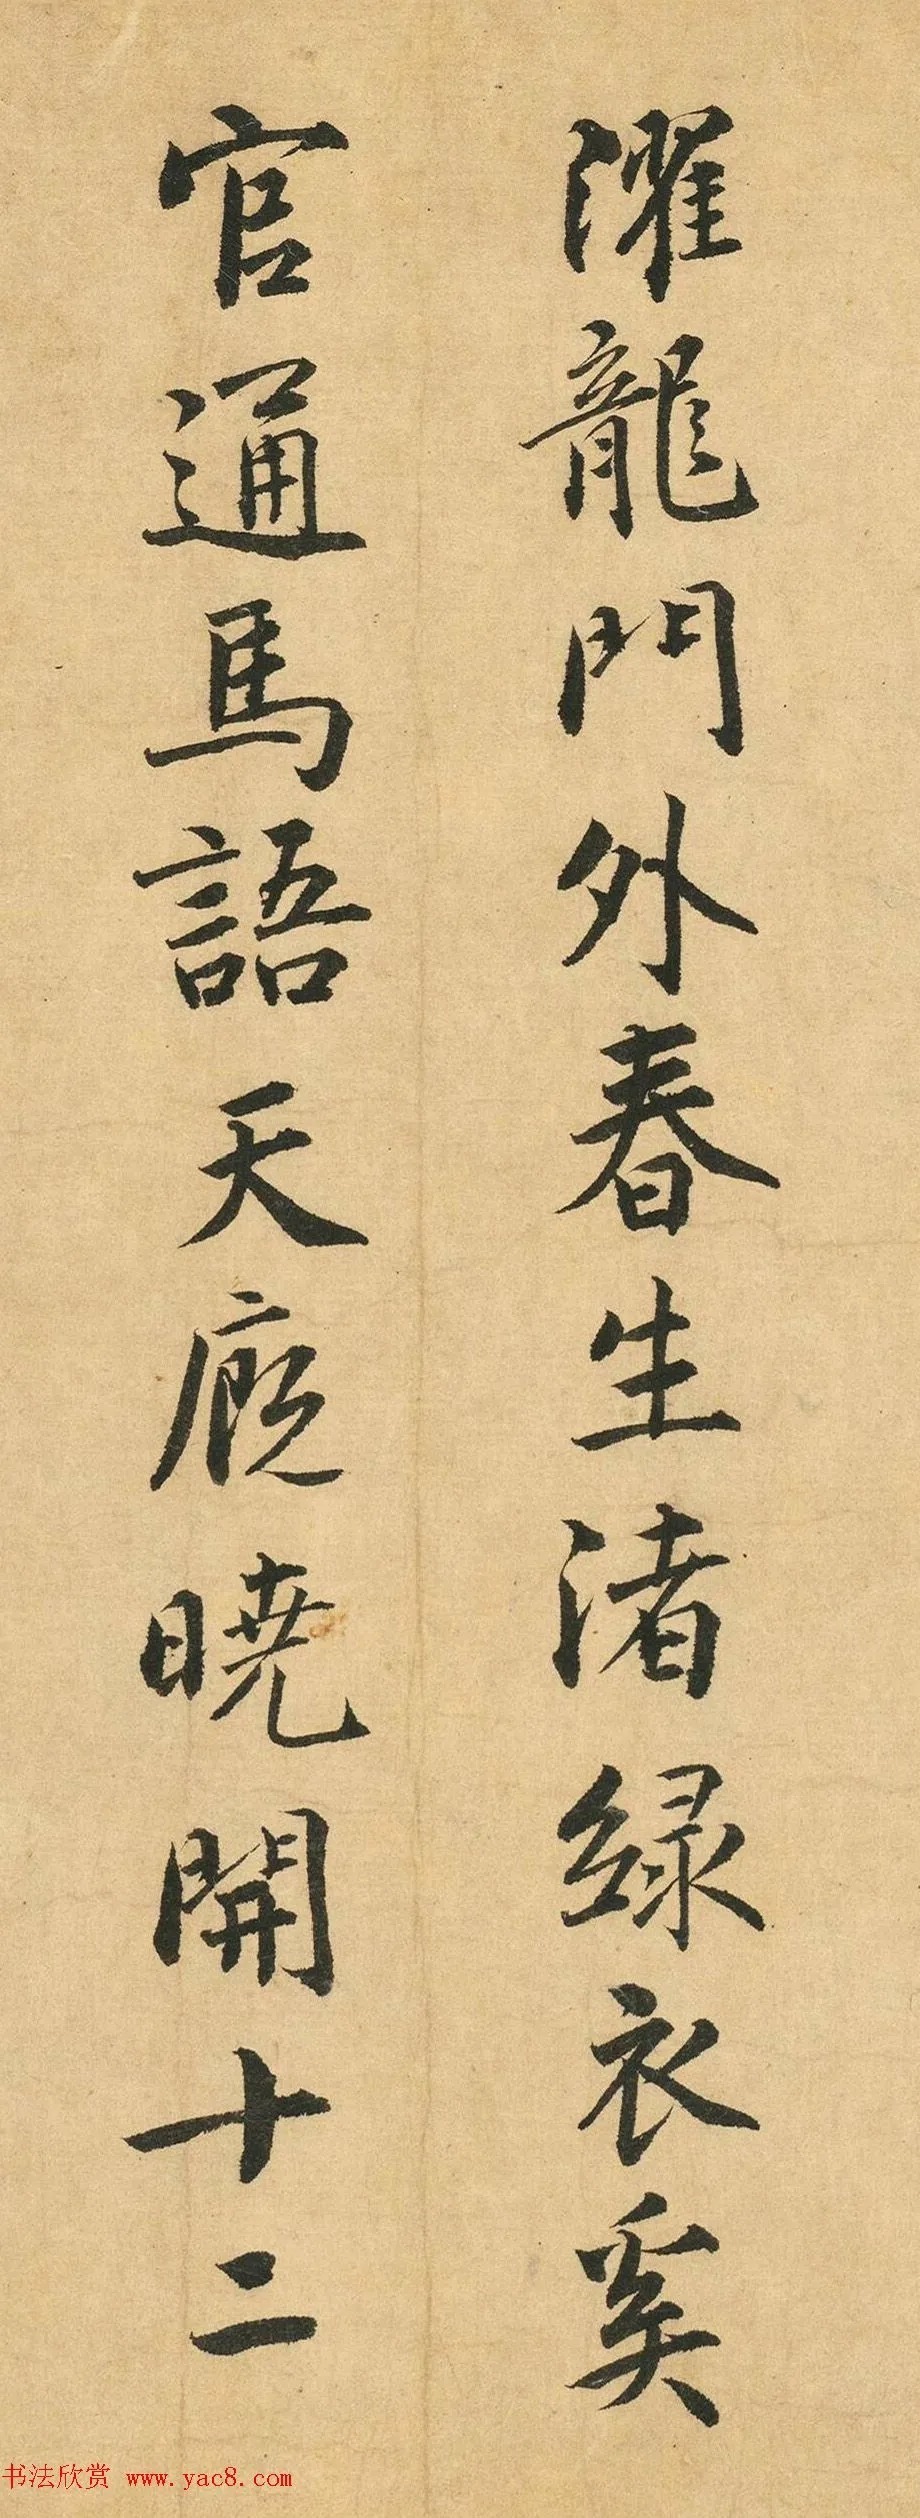 濯龍門外春生渚綠衣奚
官通馬語天廄曉開十二
书法欣赏 www.yac8.com